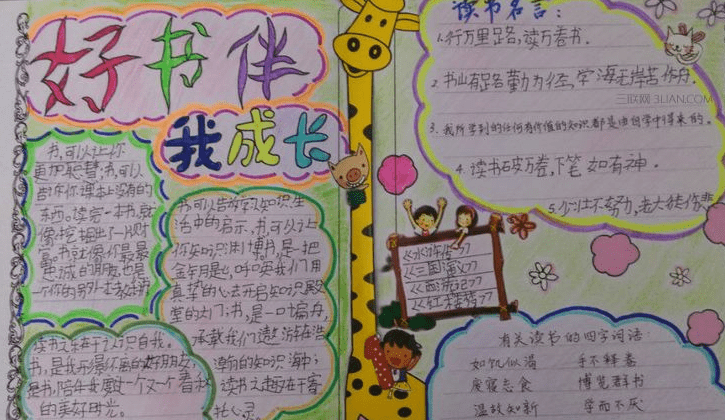 好书伴
我成长
书,可以让你
更加聪慧;书,可以
告诉你课本上没有的
东西。读完一本书,就
像挖掘出了一份财
富。书就像你最最
忠诚的朋友,也是
一个你的另外一个老师
书可以告诉我知识,生
活中的启示,书,可以让
你知识渊博。书,是一把
金钥匙,呼唤我们用
真挚的心去开启知识殿
堂的大门;书,是一叶扁舟,
承载我们遨游在浩
瀚的知识海中;
读书之趣在于塞
托心灵。
读书之乐在于认识自我。
书,是我无得怀 的好朋友,
是书,陪伴我度过一个又一个春
的美好时光。
读书名言:
1.行万里路,读万卷书.
2.书山有路勤为径,学海无岸苦作舟.
3.我所学到的任何有价值的知识都是由自学中得来的.
4.读书破万卷,下笔如有神.
5.少壮不努力,老大徒伤悲
《水浒传》
《三国演义》
《西游记》
《红楼梦》
有关读书的四字词语:
如饥似渴 手不释卷
废寝忘食 博览群书
温故知新 学而不厌
三联网 3LIAN.COM